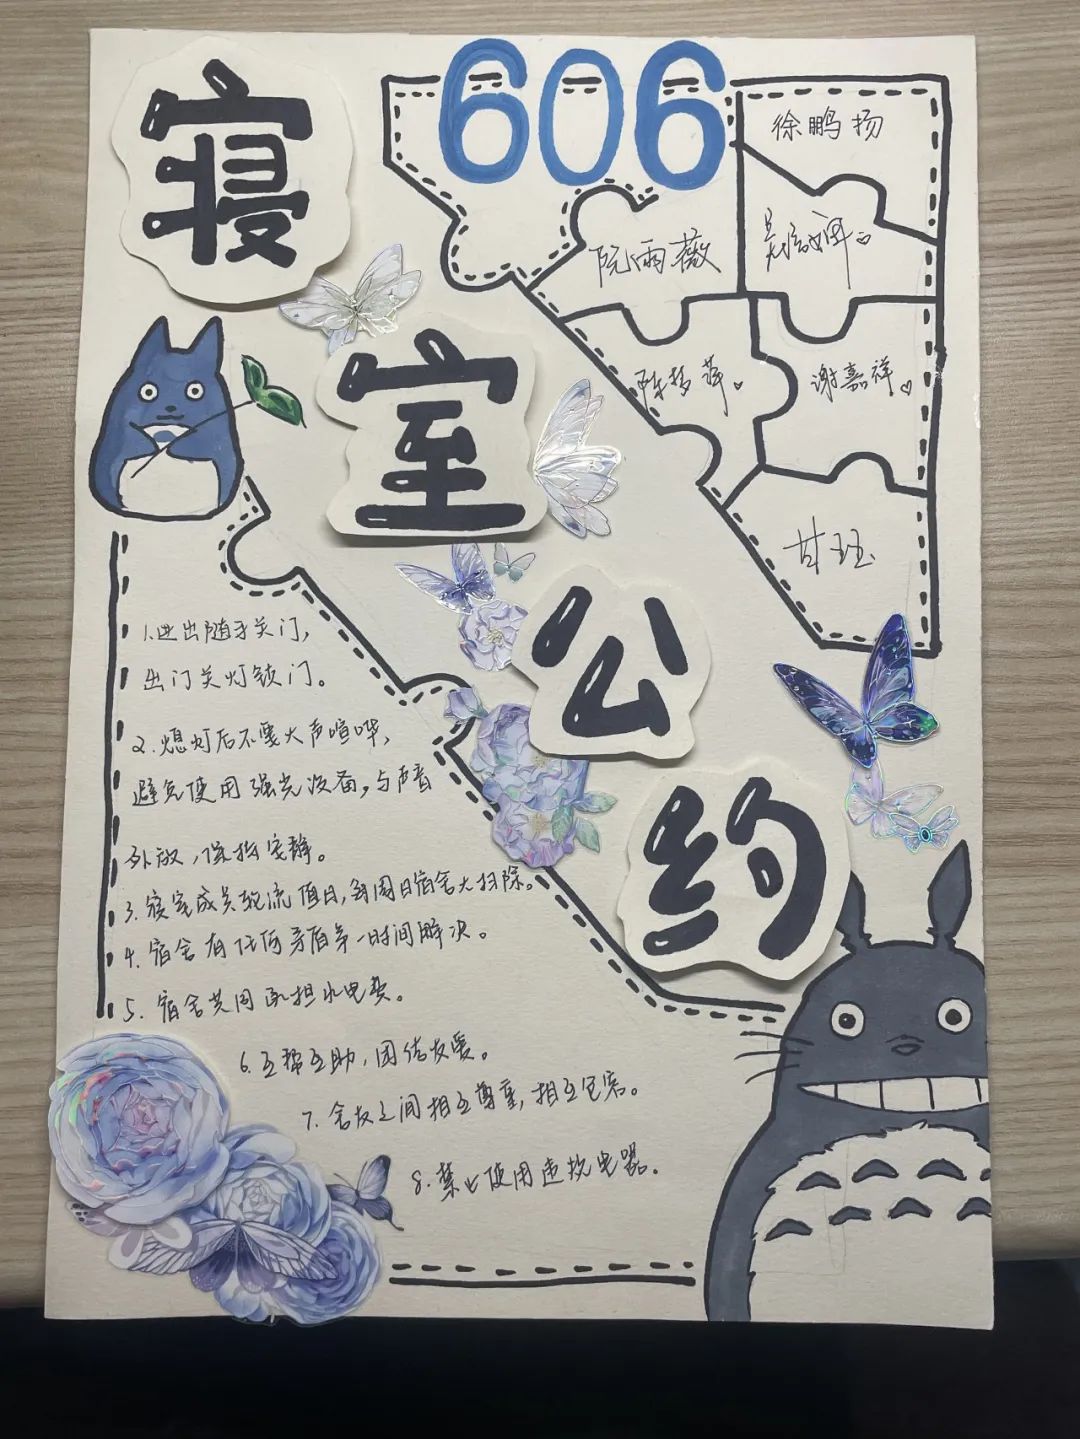 寝室公约
606
徐鹏扬
阮雨薇
谢嘉祥
甘珏
1.进出随手关门,
出门关灯锁门。
2.熄灯后不要大声喧哗,
避免使用强光设备,与声音
外放,保持安静。
3.寝室成员轮流值日,每周日宿舍大扫除。
4.宿舍有任何矛盾第一时间解决。
5.宿舍共同承担水电费。
6.互帮互助,团结友爱。
7.舍友之间相互尊重,相互包容。
8.禁止使用违规电器.